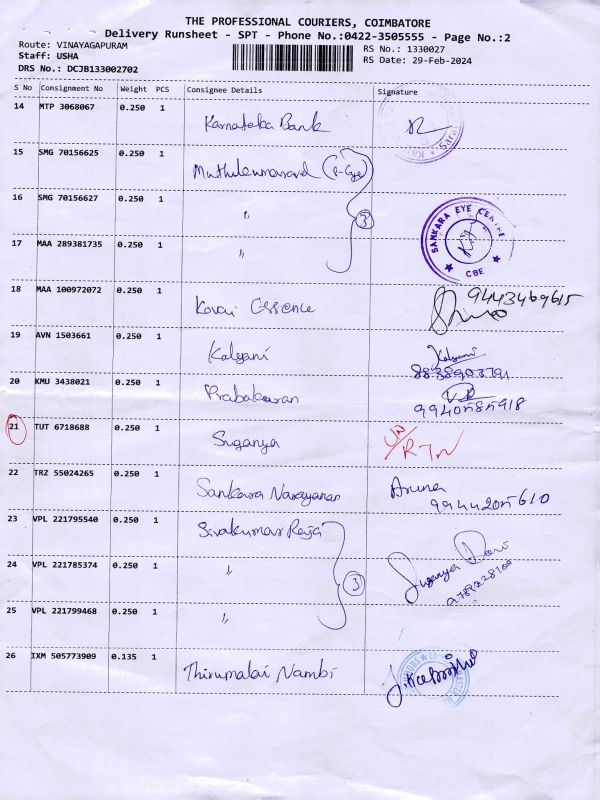 THE PROFESSIONAL COURIERS, COIMBATORE
Delivery Runsheet - SPT - Phone No.:0422-3505555 - Page No.:2
Route: VINAYAGAPURAM RS No.: 1330027
Staff: USHA RS Date: 29-Feb-2024
DRS No.: DCJB133002702
S No Consignment No Weight PCS Consignee Details Signature
14 MTP 3068067 0.250 1 Karnataka Bank
15 SMG 70156625 0.250 1
16 SMG 70156627 0.250 1 "
3
17 MAA 289381735 0.250 1 "
SANKARA EYE CENTRE
CBE
18 MAA 100972072 0.250 1 Kovai Essence 9443469615
19 AVN 1503661 0.250 1 Kalyani Kalyani
8838903791
20 KMU 3438021 0.250 1 Prabakaran
9940585918
21 TUT 6718688 0.250 1 Suganya
RTN
22 TRZ 55024265 0.250 1 Sankara Narayanan Aruna
9944205610
23 VPL 221795540 0.250 1 Sivakumar Raja
24 VPL 221785374 0.250 1 " 3 Suganya Devi
25 VPL 221799468 0.250 1 "
26 IXM 505773909 0.135 1 Thirumalai Nambi